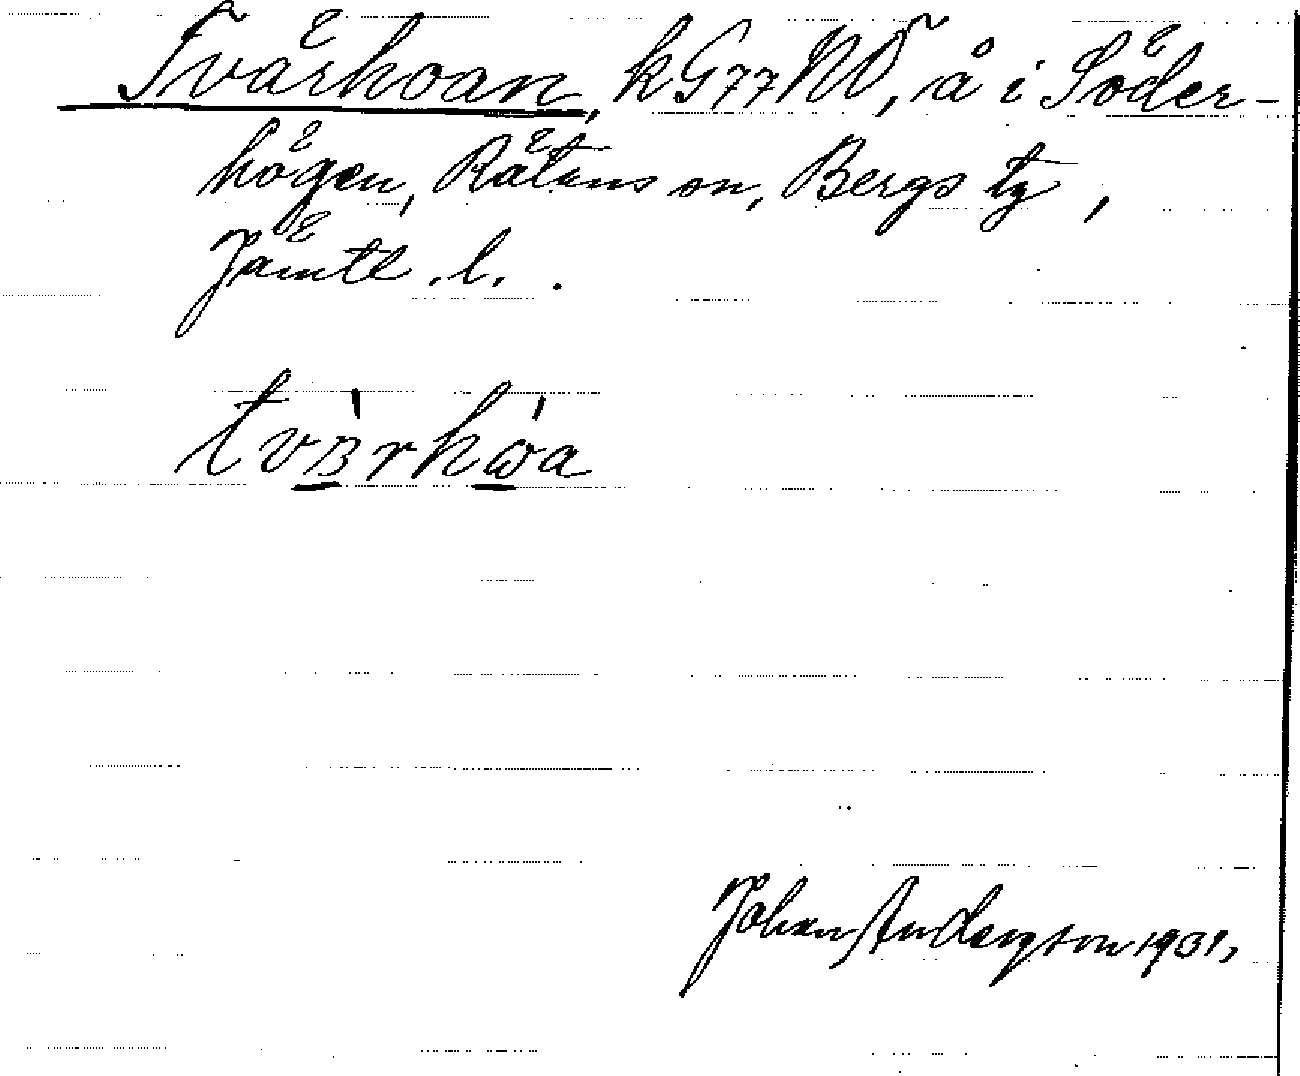 Tvärhoan, kG77NÖ, å i Söder-
högen, Rätans sn, Bergs tg,
Jämtl. l.
tvàrhὼa
Johan Anderson 1931,